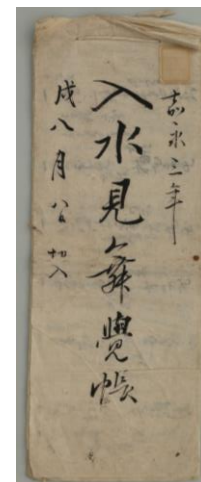 嘉永三年
入水見舞覺帳
戌八月八日切入